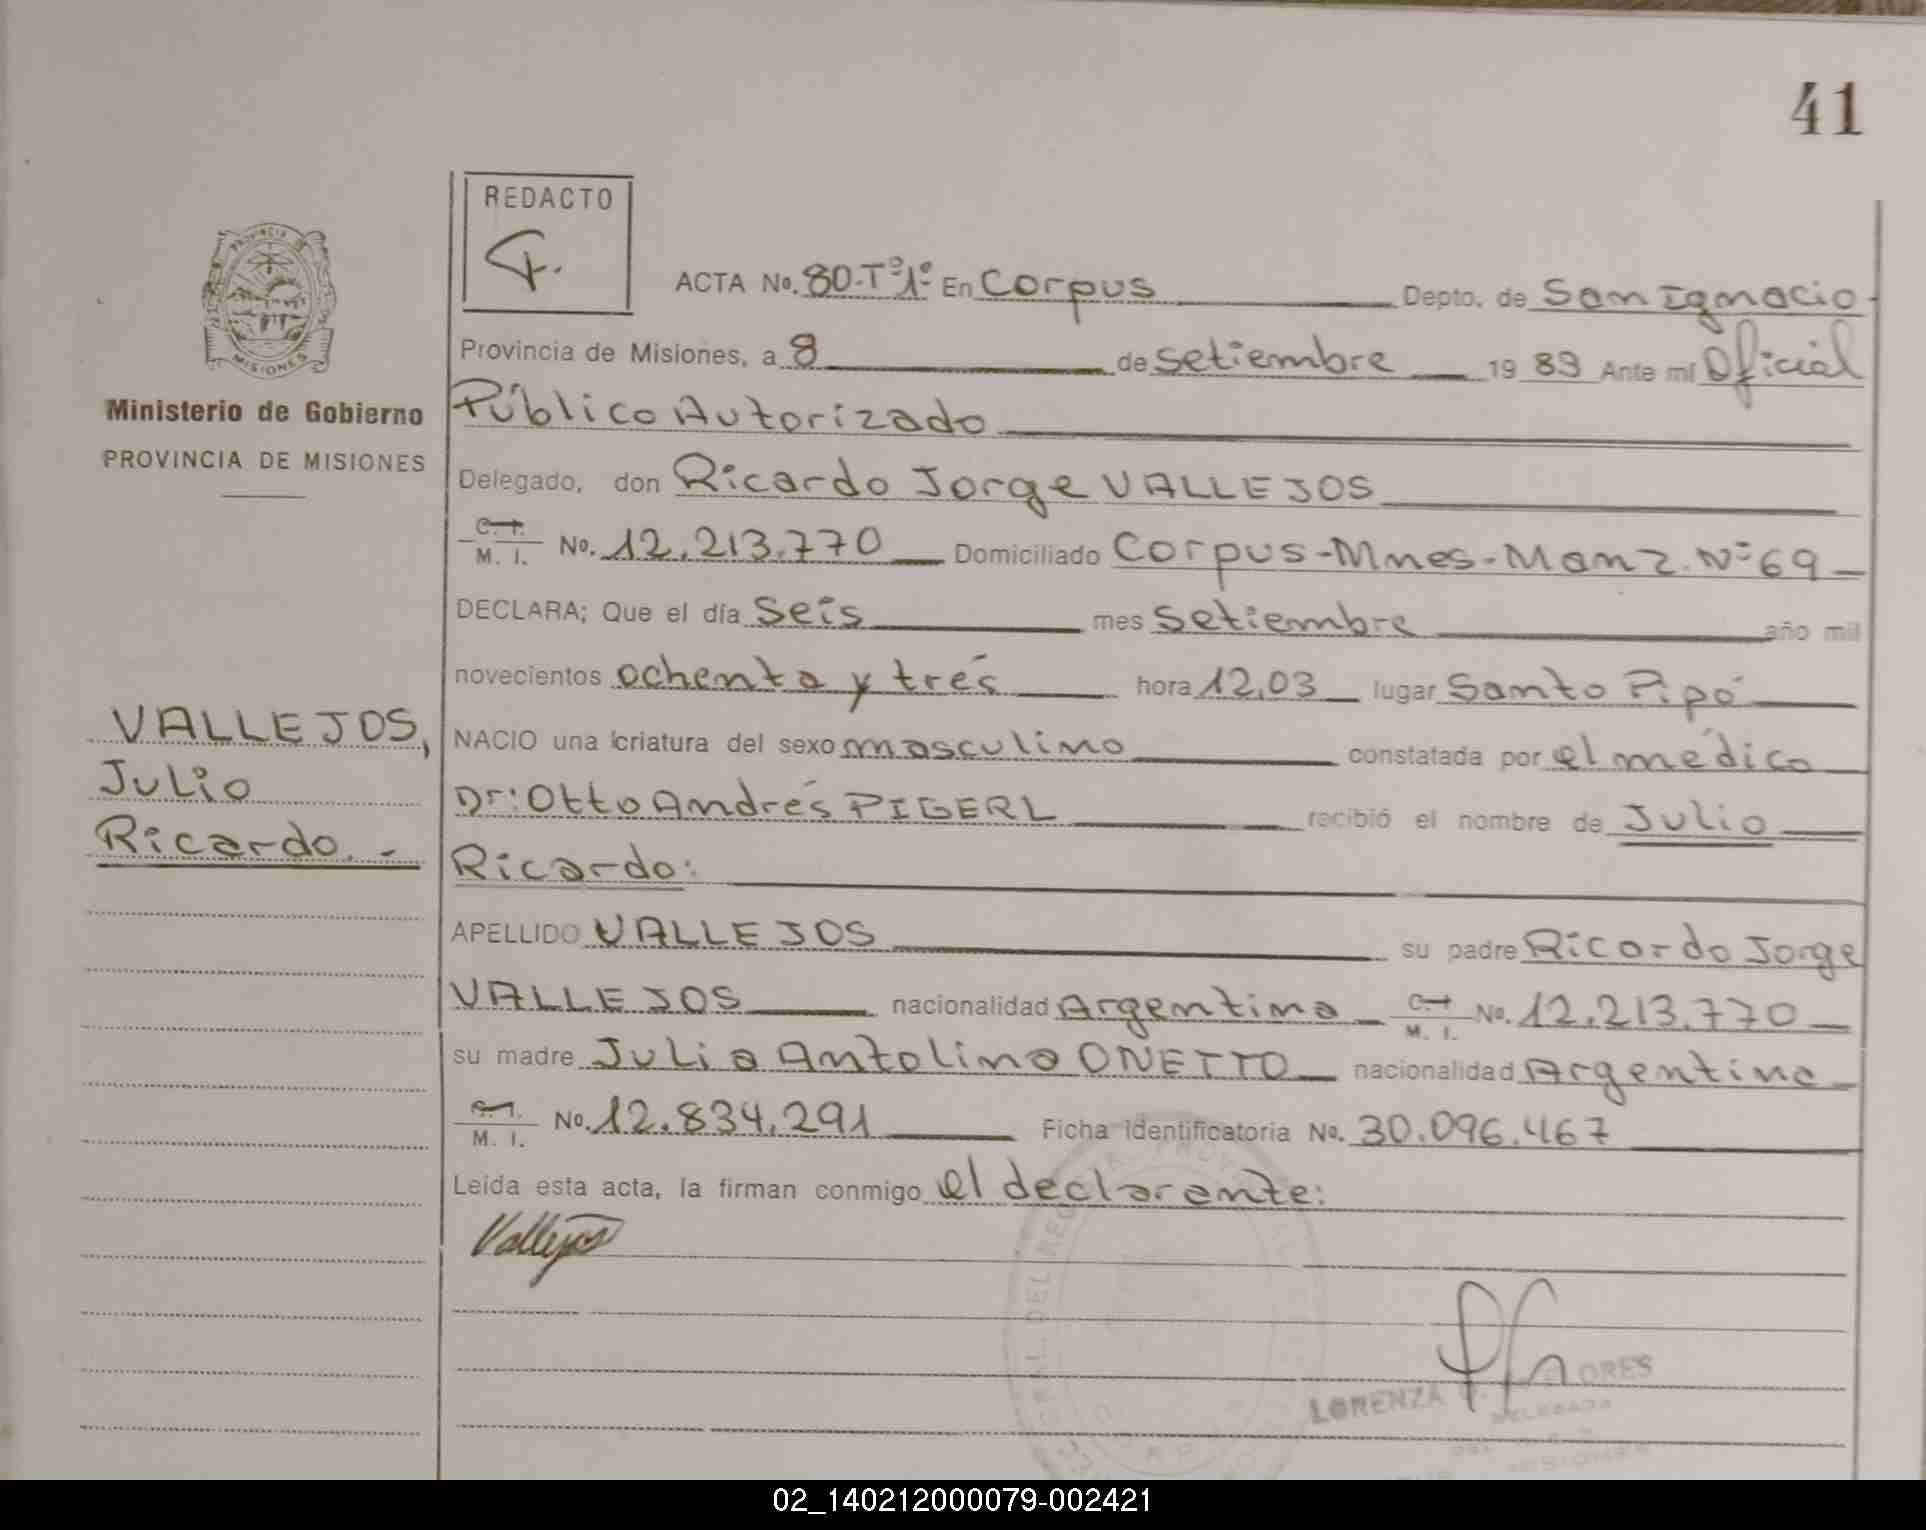 41
REDACTO
ACTA No. 80-Tº1º En Corpus Depto. de San Ignacio
Provincia de Misiones, a 8 de setiembre 19 83 Ante mí Oficial
Ministerio de Gobierno
Público Autorizado
PROVINCIA DE MISIONES
Delegado, don Ricardo Jorge VALLEJOS
C. I. M. I. No. 12.213.770 Domiciliado Corpus-Mnes-Manz. Nº 69
DECLARA; Que el día seis mes setiembre año mil
novecientos ochenta y trés hora 12,03 lugar Santo Pipó
VALLEJOS,
Julio
Ricardo.-
NACIO una criatura del sexo masculino constatada por el médico
Dr: Otto Andrés PIGERL recibió el nombre de Julio
Ricardo:
APELLIDO VALLEJOS su padre Ricardo Jorge
VALLEJOS nacionalidad Argentina C. I. M. I. No. 12.213.770
su madre Julia Antolina ONETTO nacionalidad Argentina
C. I. M. I. No. 12.834.291 Ficha identificatoria No. 30.096.467
Leída esta acta, la firman conmigo el declarante:
Vallejos
LORENZA ORES
DELEGADA
MISIONES
02_140212000079-002421